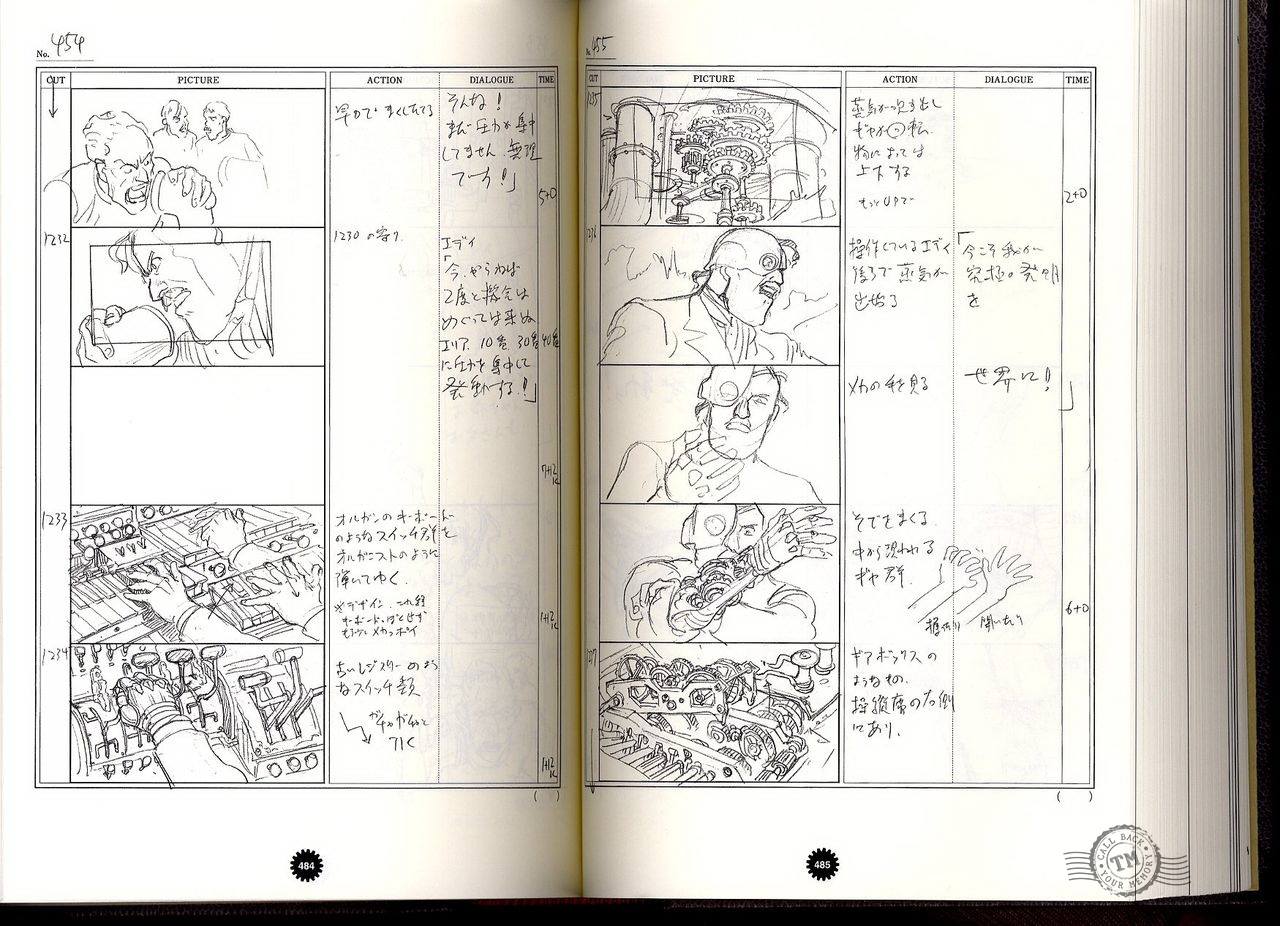 No. 454
CUT
PICTURE
ACTION
DIALOGUE
TIME
早口で まくしたてる
そんな!
まだ圧力が集中
してません. 無理
でーす!」
5+0
1232
1230 の寄り.
エディ
「今.やらねば
2度と機会は
めぐっては来ぬ
エリア 10番 30番 40番
に圧力を集中して
発動する!!」
7+12
1233
オルガンのキーボード
のようなスイッチ群を
オルガニストのように
弾いてゆく.
1+12
1234
古いレジスターのよう
なスイッチ類
ガチャガチャと
引く
1+12
484
No. 455
CUT
PICTURE
ACTION
DIALOGUE
TIME
1235
蒸気が吹き出し
ギヤが回転.
物によっては
上下する
もっとUPで
2+0
1236
操作しているエディ
後ろで蒸気が
出始る
「今こそ我が
究極の発明
を
メカの手を見る
世界に!!」
そでをまくる
中から現われる
ギヤ群.
握ったり
開いたり
6+0
1237
ギアボックスの
ようなもの.
操縦席の右側
にあり.
485
CALL BACK
TM
YOUR MEMORY